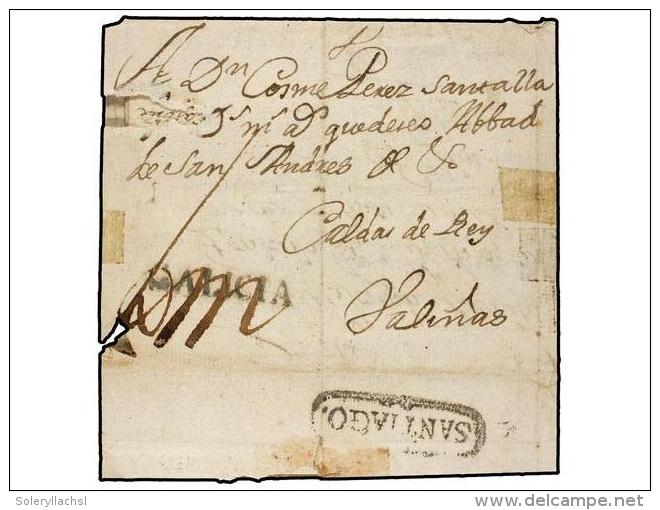 A Dn Cosme Perez Santalla
gs ms ads quedeseo Abbad
de San Andres & &
Caldas de Rey
Saliñas
GALICIA
SANTIAGO.
Soleryllachsl
delcampe.net